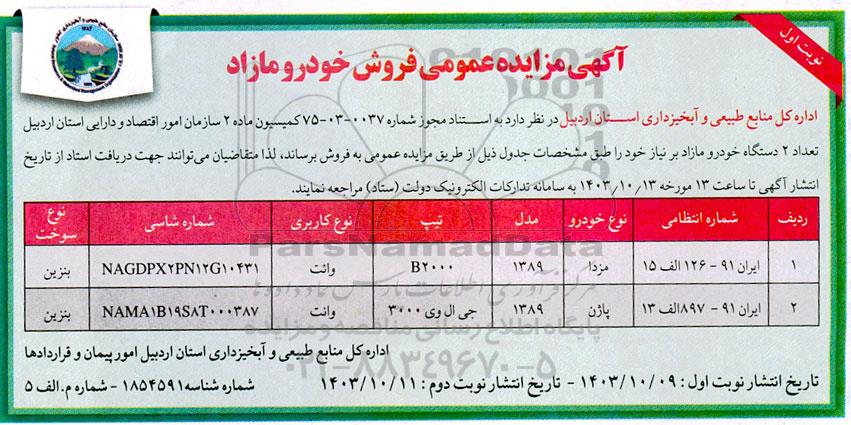 نوبت اول
آگهی مزایده عمومی فروش خودرو مازاد
اداره کل منابع طبیعی و آبخیزداری استان اردبیل در نظر دارد به استناد مجوز شماره ۰۰۳۷-۰۳-۷۵ کمیسیون ماده ۲ سازمان امور اقتصاد و دارایی استان اردبیل
تعداد ۲ دستگاه خودرو مازاد بر نیاز خود را طبق مشخصات جدول ذیل از طریق مزایده عمومی به فروش برساند، لذا متقاضیان می‌توانند جهت دریافت اسناد از تاریخ
انتشار آگهی تا ساعت ۱۳ مورخه ۱۴۰۳٫۱۰٫۱۳ به سامانه تدارکات الکترونیک دولت (ستاد) مراجعه نمایند.
ردیف شماره انتظامی نوع خودرو مدل تیپ نوع کاربری شماره شاسی نوع سوخت
۱ ایران ۹۱ - ۱۲۶ الف ۱۵ مزدا ۱۳۸۹ B۲۰۰۰ وانت NAGDPX۲PN۱۲G۱۰۴۳۱ بنزین
۲ ایران ۹۱ - ۸۹۷الف ۱۳ پاژن ۱۳۸۹ جی ال وی ۳۰۰۰ وانت NAMA۱B۱۹S۸T۰۰۰۳۸۷ بنزین
ParsNamadData
مرکز فرآوری اطلاعات پارس نماد داده‌ها
پایگاه اطلاع رسانی مناقصه و مزایده
۰۲۱-۸۸۳۴۹۶۷۰-۵
اداره کل منابع طبیعی و آبخیزداری استان اردبیل امور پیمان و قراردادها
تاریخ انتشار نوبت اول : ۱۴۰۳/۱۰/۰۹ - تاریخ انتشار نوبت دوم : ۱۴۰۳/۱۰/۱۱ شماره شناسه ۱۸۵۴۵۹۱- شماره م.الف ۵